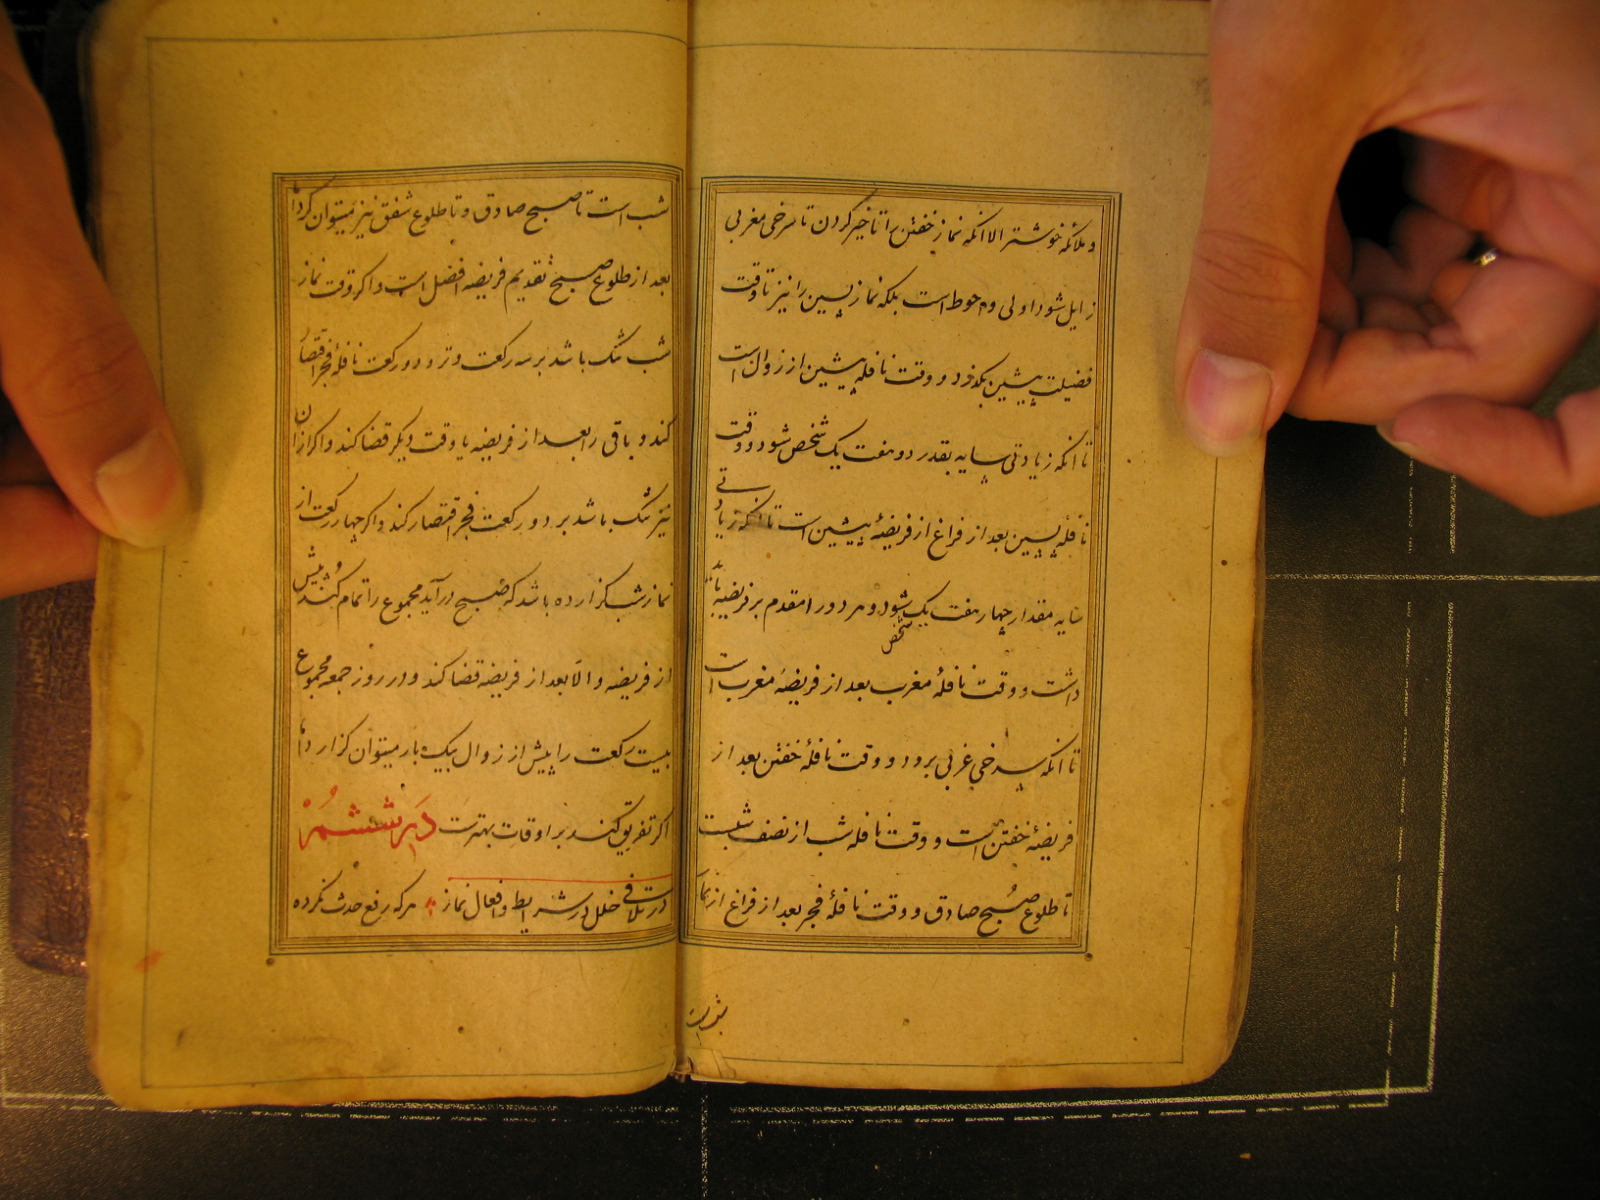 و ملائکه خوشتر الا انکه نماز خفتن را تاخیر کردن تا سرخی مغربی
زایل شود اولی و احوط است بلکه نماز پسین را نیز تا وقت
فضیلت پیشین بگذرد و وقت نافله پیشین از زوال است
تا انکه زیادتی سایه بقدر دو هفت یک شخص شود و وقت
نافله پسین بعد از فراغ از فریضهٔ پیشین است تا انکه زیادتی
سایه مقدار چهار هفت یک شخص شود و هر دو را مقدم بر فریضه باید
داشت و وقت نافلهٔ مغرب بعد از فریضهٔ مغرب است
تا انکه سرخی غربی برود و وقت نافلهٔ خفتن بعد از
فریضهٔ خفتن است و وقت نافله شب از نصف شبست
تا طلوع صبح صادق و وقت نافلهٔ فجر بعد از فراغ از نماز
شب است
شب است تا صبح صادق و تا طلوع شفق نیز میتوان کرد اما
بعد از طلوع صبح تقدیم فریضه افضل است و اکر وقت نماز
شب تنک باشد بر سه رکعت وتر و دو رکعت نافلهٔ فجر اقتصار
کند و باقی را بعد از فریضه یا وقت دیکر قضا کند و اکر از ان
نیز تنک باشد بر دو رکعت فجر اقتصار کند و اکر چهار رکعت از
نماز شب کزارده باشد که صبح درآید مجموع را تمام کند پیش
از فریضه و الّا بعد از فریضه قضا کند و در روز جمعه مجموع
بیست رکعت را پیش از زوال بیک بار میتوان کزارد اما
اکر تفریق کند بر اوقات بهترست در ششم
در تلافی خلل در شرایط و افعال نماز هر که رفع حدث نکرده